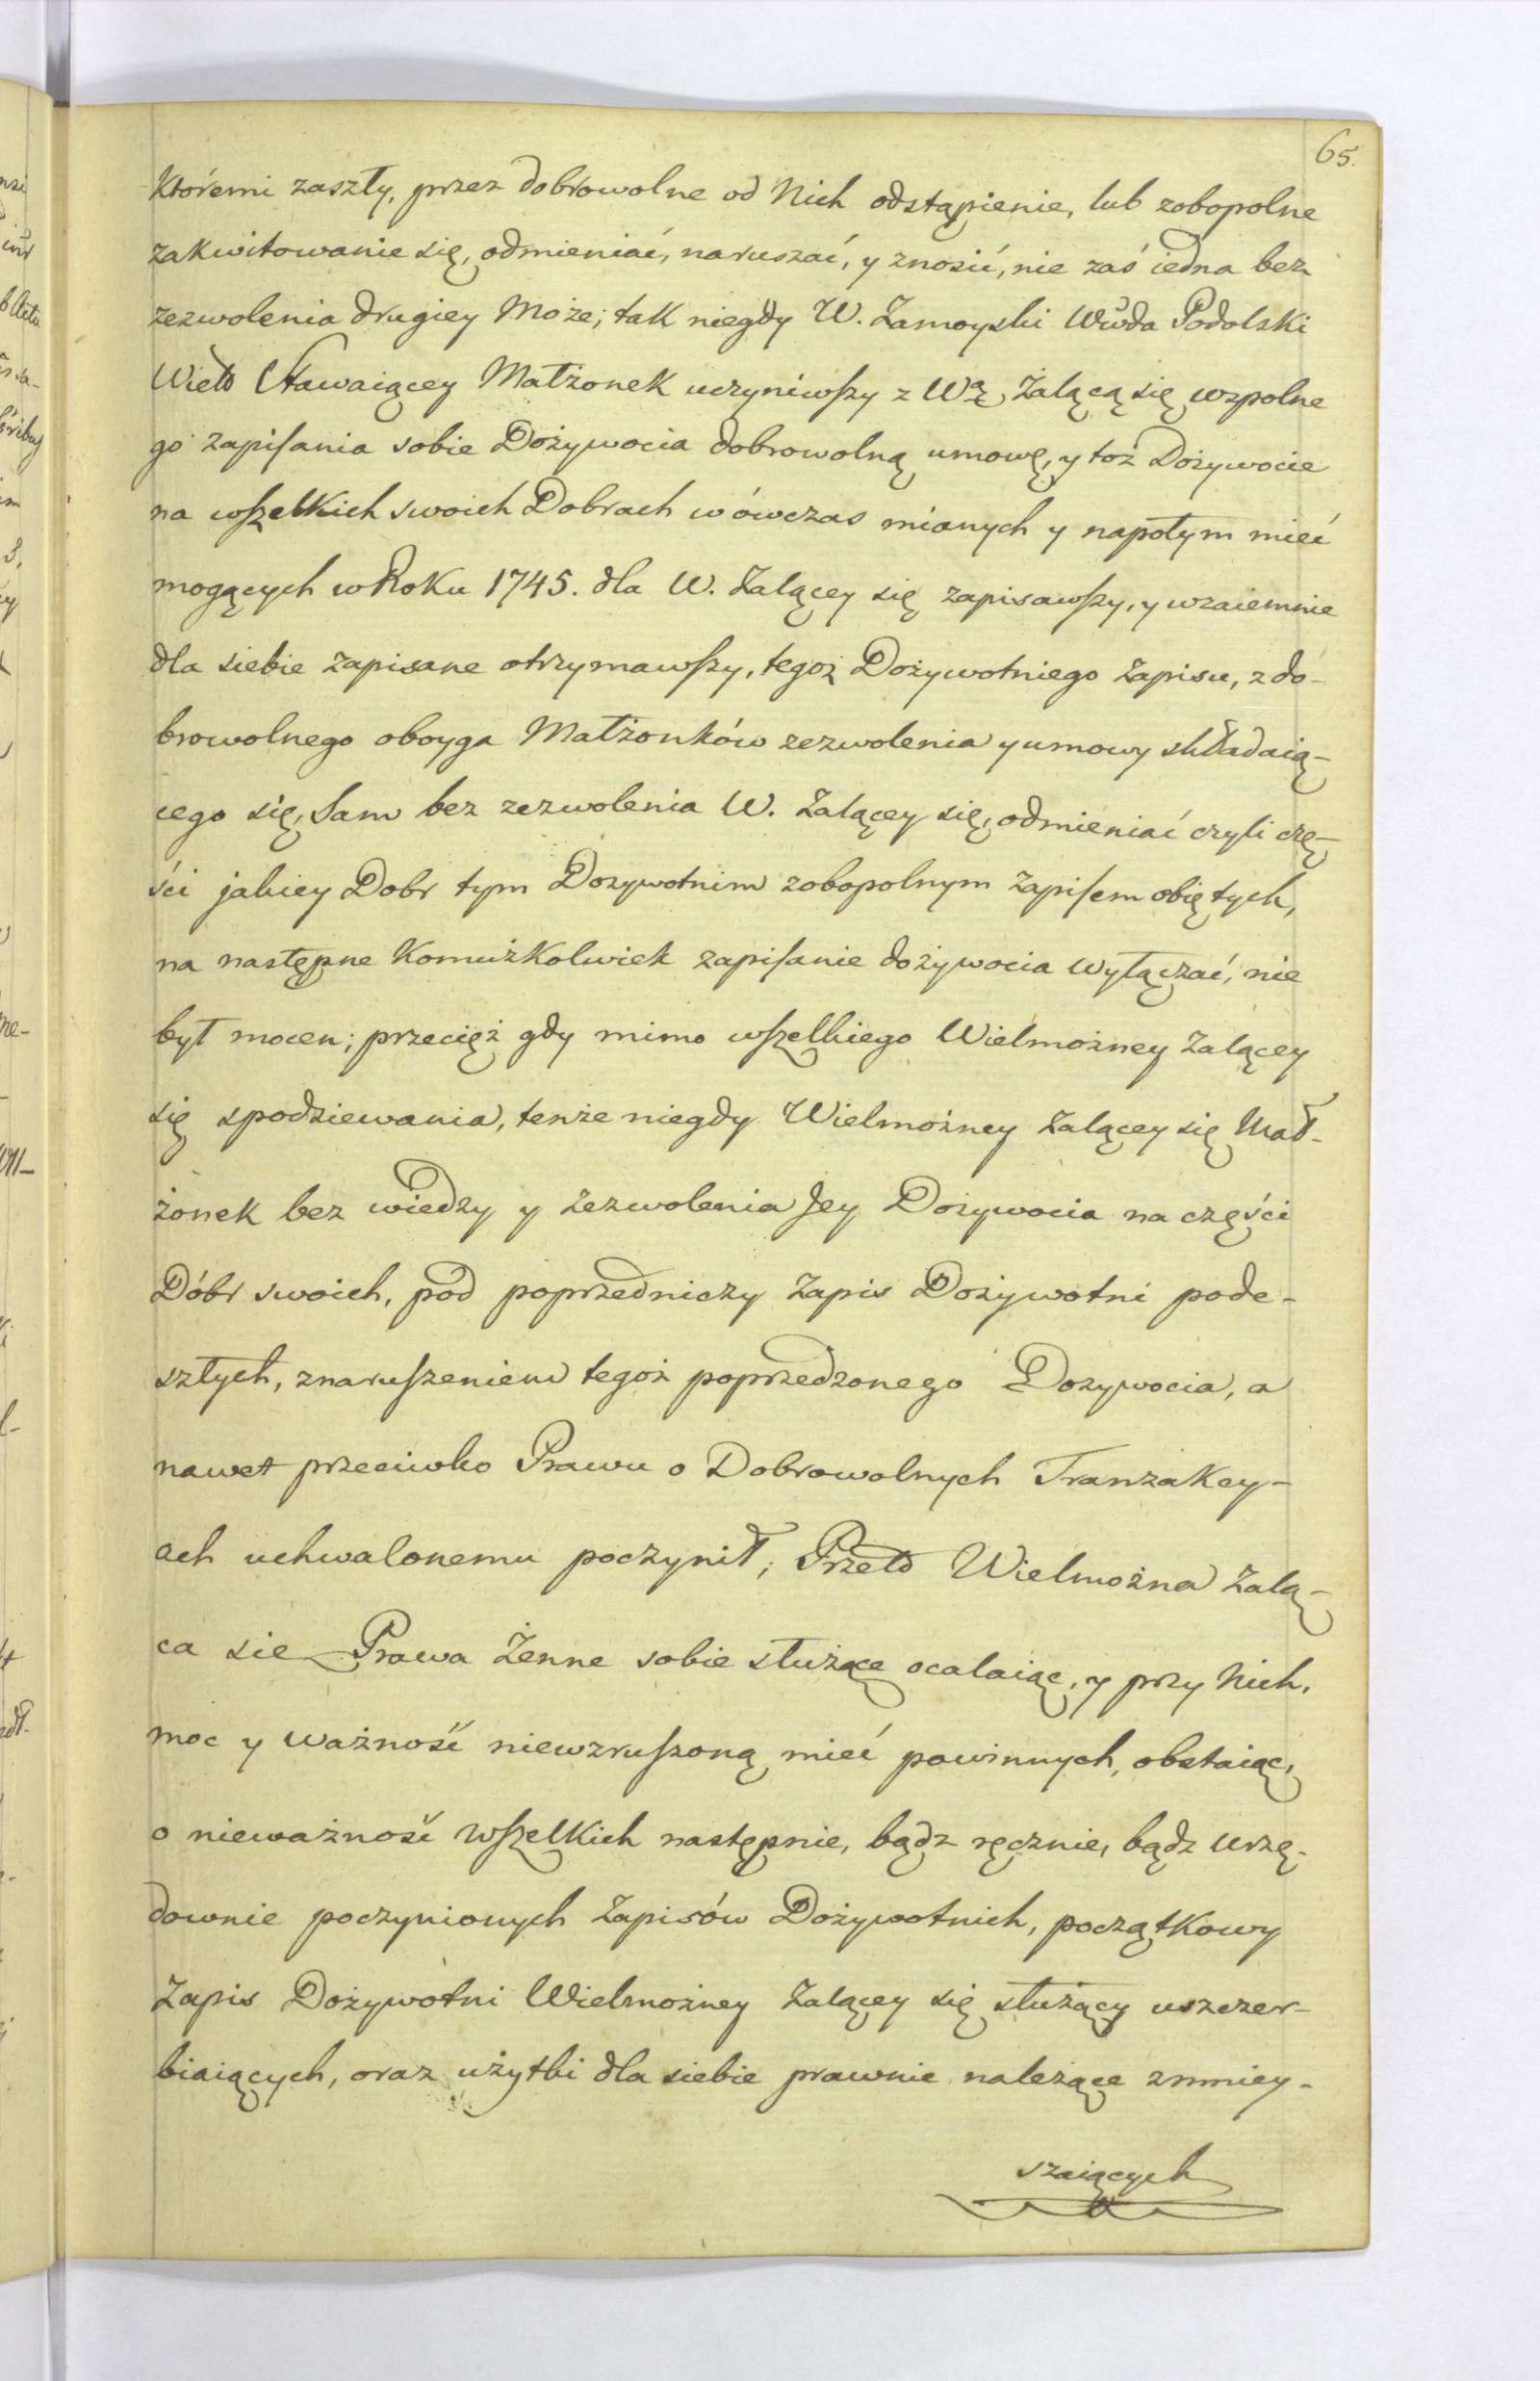 65.
Ktoremi zaszły, przez dobrowolne od Nich odstąpienie, lub zobopolne
zakwitowanie się, odmieniać, naruszać, y znosić, nie zaś iedna bez
zezwolenia drugiey Może; tak niegdy W. Zamoyski Wwda Podolski
Stawaiącey Małżonek uczyniwszy z Wą Żalącą się wzpolne
go zapisania sobie Dożywocia dobrowolną umowę, y toż Dożywocie
na wszelkich swoich Dobrach wówczas mianych y napotym mieć
mogących w Roku 1745. dla W. Żalącey się zapisawszy, y wzaiemnie
dla siebie zapisane otrzymawszy, tegoż Dożywotniego Zapisu, z do-
browolnego oboyga Małżonków zezwolenia y umowy składaią-
cego się, Sam bez zezwolenia W. Żalącey się, odmieniać czyli czę-
ści jakiey Dobr tym Dozywotnim zobopolnym Zapisem obiętych,
na następne Komużkolwiek zapisanie dożywocia wyłączać, nie
był mocen; przecięż gdy mimo wszelkiego Wielmożney Żalącey
się spodziewania, tenże niegdy Wielmożney Żalącey się Mał-
żonek bez wiedzy y Zezwolenia Jey Dożywocia na części
Dóbr swoich, pod poprzedniczy Zapis Dożywotni pode-
szłych, z naruszeniem tegoż poprzedzonego Dozywocia, a
nawet przeciwko Prawu o Dobrowolnych Tranzakcy-
ach uchwalonemu poczynił; Przeto Wielmożna Żalą-
ca sie Prawa Żenne sobie służące ocalaiąc, y przy Nich,
moc y ważność niewzruszoną mieć powinnych, obstaiąc,
o nieważność wszelkich następnie, bądz ręcznie, bądz Urzę-
downie poczynionych Zapisów Dożywotnich, początkowy
Zapis Dożywotni Wielmożney Żalącey się służący uszczer-
biaiących, oraz użytki dla siebie prawnie należące zmniey-
szaiących